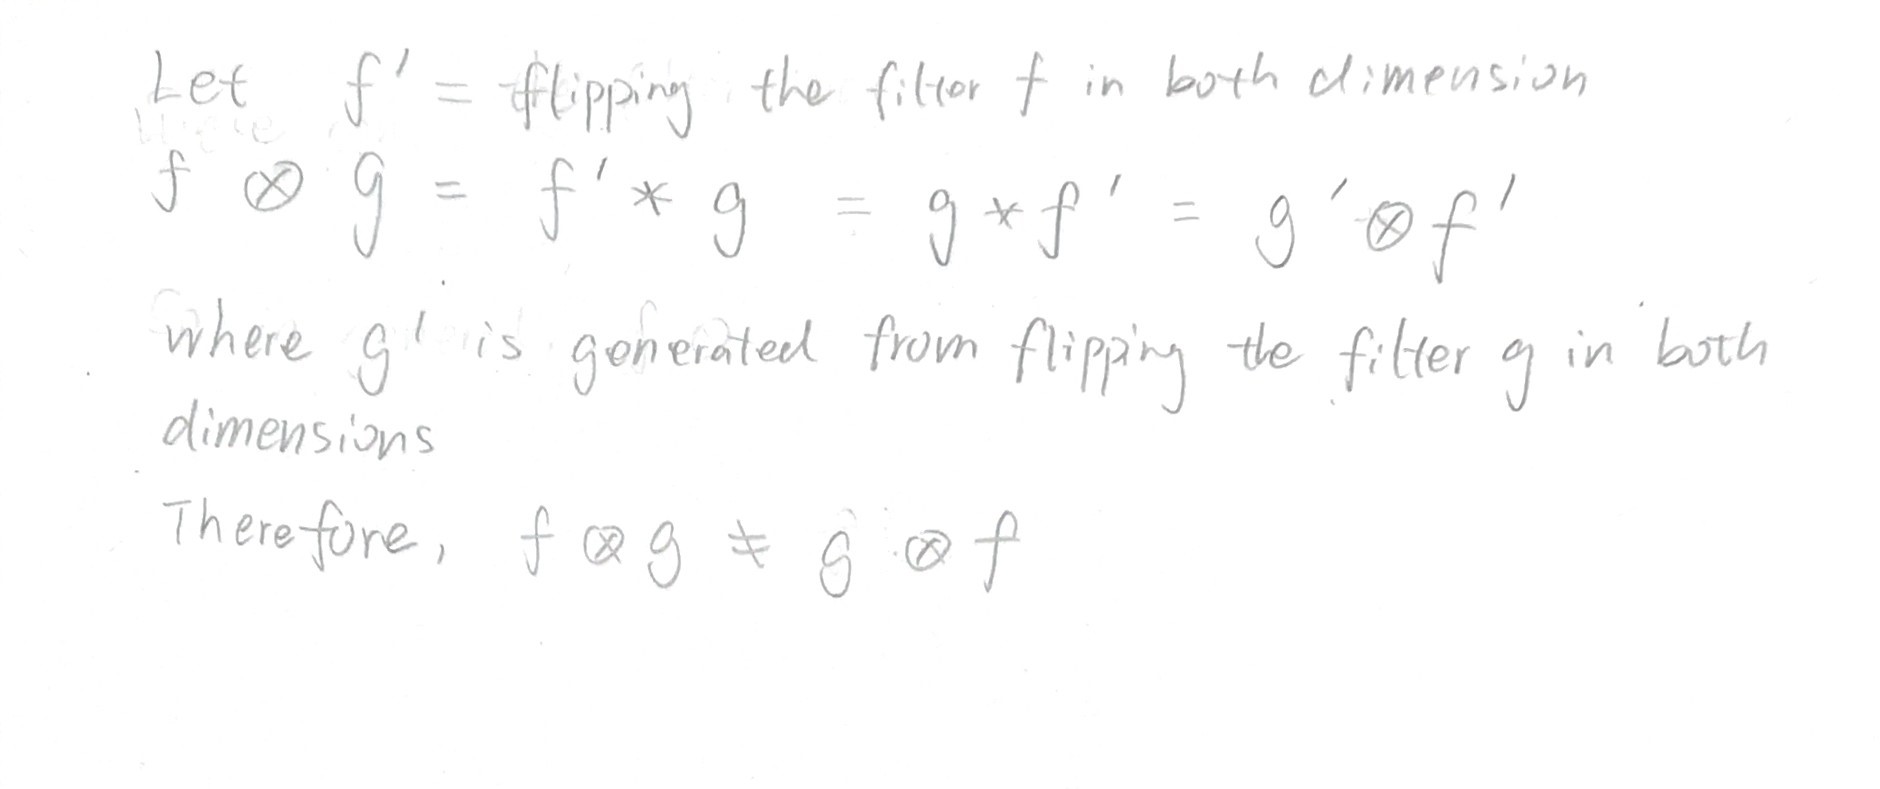 Let f' = flipping the filter f in both dimension
f ⊗ g = f' * g = g * f' = g' ⊗ f'
where g' is generated from flipping the filter g in both
dimensions
Therefore, f ⊗ g ≠ g ⊗ f